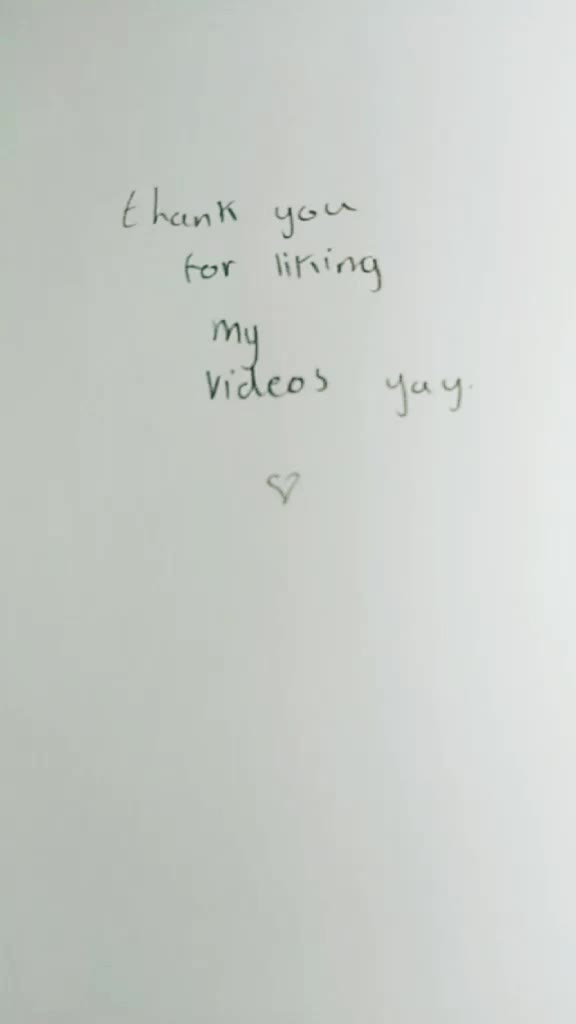 thank you
for liking
my
videos yay.